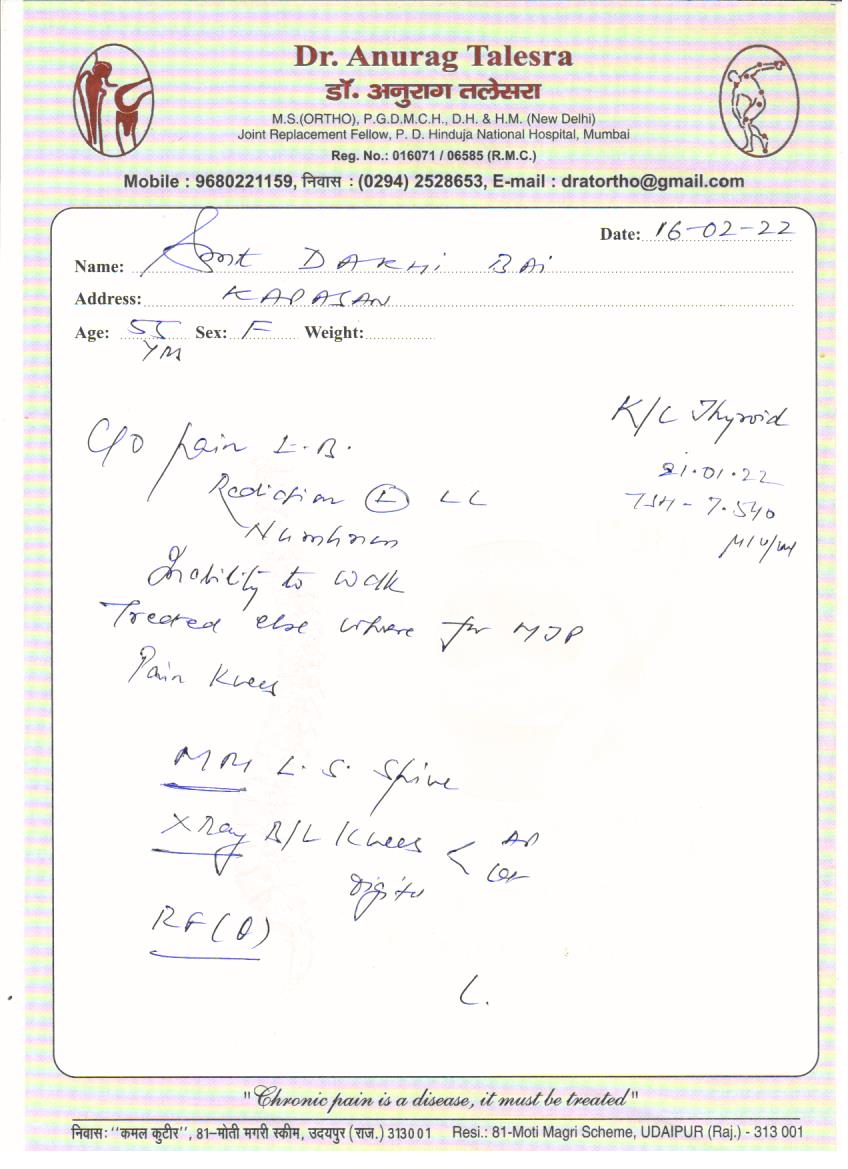 Dr. Anurag Talesra
डॉ. अनुराग तलेसरा
M.S.(ORTHO), P.G.D.M.C.H., D.H. & H.M. (New Delhi)
Joint Replacement Fellow, P. D. Hinduja National Hospital, Mumbai
Reg. No.: 016071 / 06585 (R.M.C.)
Mobile : 9680221159, निवास : (0294) 2528653, E-mail : dratortho@gmail.com
Date: 16-02-22
Name: Smt DAKHI BAI
Address: KAPASAN
Age: 55 Sex: F Weight:
Yrs
K/C Thyroid
21.01.22
TSH - 7.540
µIU/ml
C/O pain L.B.
Radiation L LL
Numbness
Inability to walk
Treated else where for MJP
Pain Knees
MRI L.S. Spine
X Ray B/L Knees < AP
Lat
Digital
RF (Q)
"Chronic pain is a disease, it must be treated"
निवास: "कमल कुटीर", 81–मोती मगरी स्कीम, उदयपुर (राज.) 313001 Resi.: 81-Moti Magri Scheme, UDAIPUR (Raj.) - 313 001